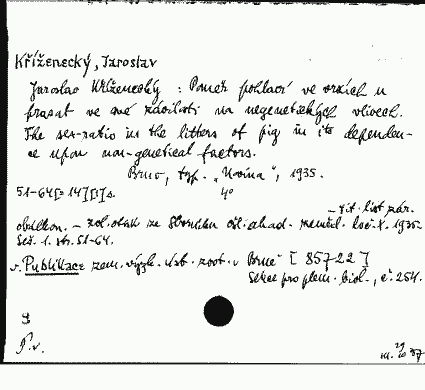 Kříženecký, Jaroslav
Jaroslav Kříženecký : Poměr pohlaví ve vrzích u
prasat ve své závilosti na negenetických vlivech.
The sex-ratio in the litters of pig in its dependen-
ce upon non-genetical factors.
Brno, typ. „Novina", 1935.
51-64[=14][1]s. 4°
- tit. list
obálkou. - zvl. otisk ze Sborníku čsl. akad. zeměd. roč. X. 1935.
Seš. 1. str. 51-64.
v. Publikace zem. výzk. úst. zoot. v Brně [85722]
Sekce pro plem. biol., č. 254.
9
P.v.
29
37